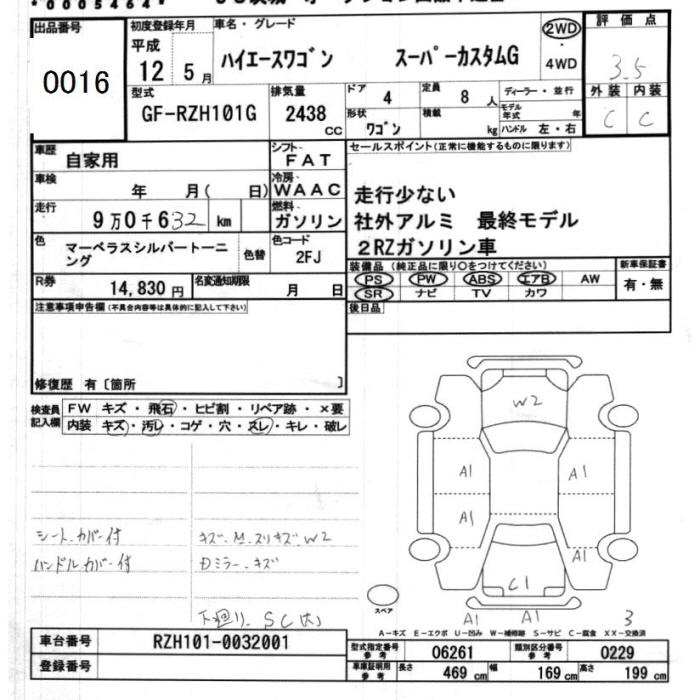 *0005464*
出品番号
0016
初度登録年月
平成
12 5月
車名・グレード
ハイエースワゴン スーパーカスタムG
2WD
・
4WD
評価点
3.5
外装 内装
C C
型式
GF-RZH101G
排気量
2438
CC
ドア
4
定員
8 人
形状
ワゴン
積載
kg
ディーラー・並行
モデル年式 年
ハンドル 左・右
車歴
自家用
シフト
FAT
車検
年 月( 日)
冷房
WAAC
走行
9万0千632 km
燃料
ガソリン
色
マーベラスシルバートーニング
色替
色コード
2FJ
R券
14,830 円
名変通知期限
月 日
セールスポイント(正常に機能するものに限ります)
走行少ない
社外アルミ 最終モデル
2RZガソリン車
装備品(純正品に限り○をつけてください)
PS PW ABS エアB AW
SR ナビ TV カワ
新車保証書
有・無
後日品
注意事項申告欄(不具合内容等は具体的に記入して下さい)
修復歴 有〔箇所 〕
検査員記入欄
FW キズ・飛石・ヒビ割・リペア跡・×要
内装 キズ・汚レ・コゲ・穴・スレ・キレ・破レ
シートカバー付
ハンドルカバー付
キズ.M.スリキズ W2
Dミラー.キズ
下廻り.SC(大)
W2
A1
A1
A1
A1
C1
A1
A1
3
スペア
A-キズ E-エクボ U-凹み W-補修跡 S-サビ C-腐食 XX-交換済
車台番号
RZH101-0032001
登録番号
型式指定番号
参考
06261
類別区分番号
参考
0229
車庫証明用
参考
長さ
469 cm
幅
169 cm
高さ
199 cm